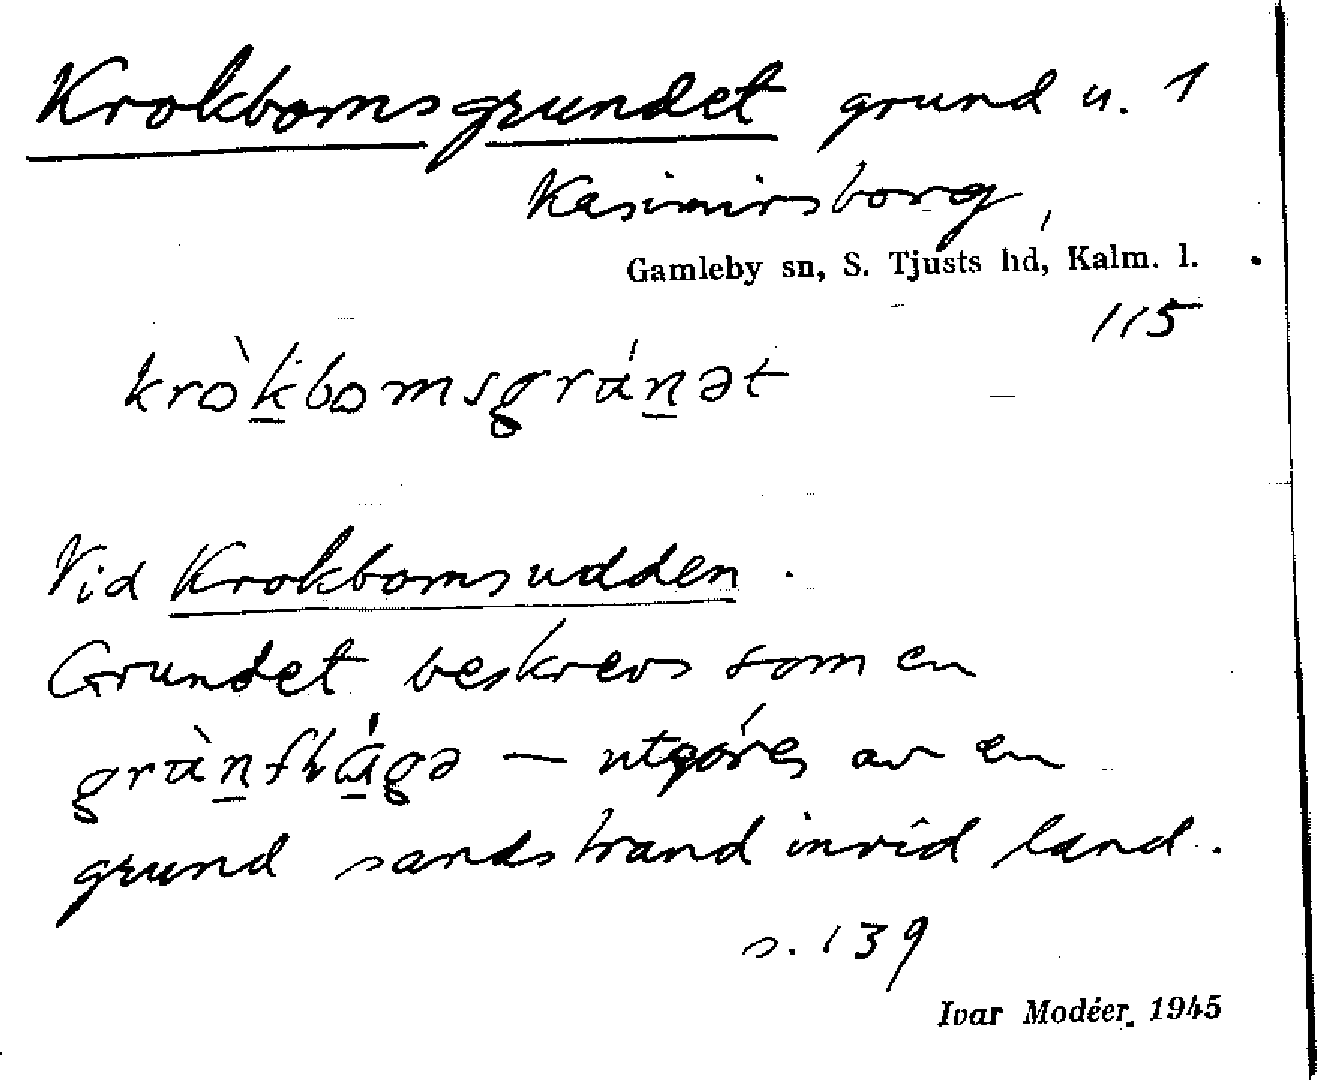 Krokbomsgrundet grund u. 1
Kasimirsborg,
Gamleby sn, S. Tjusts hd, Kalm. l.
115
kròk̲bomsgrán̲ət
Vid Krokbomsudden.
Grundet beskrevs som en
— utgöres av en
grund sandstrand invid land.
s. 139
Ivar Modéer. 1945